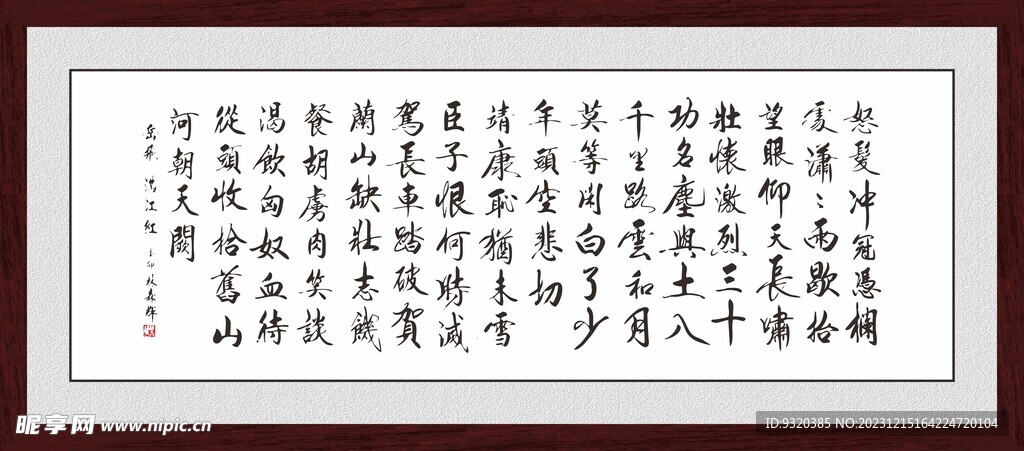 怒髮冲冠憑欄
處瀟〻雨歇抬
望眼仰天長嘯
壯懷激烈三十
功名塵與土八
千里路雲和月
莫等閑白了少
年頭空悲切
靖康恥猶未雪
臣子恨何時滅
駕長車踏破賀
蘭山缺壯志饑
餐胡虜肉笑談
渴飲匈奴血待
從頭收拾舊山
河朝天闕
岳飛 滿江紅
昵享网 www.nipic.cn
ID:9320385 NO:20231215164224720104